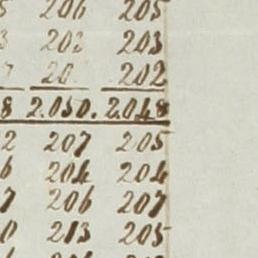 5 206 205
3 202 203
7 20 202
8 2.050. 2.048
2 207 205
6 204 204
7 206 207
0 213 205